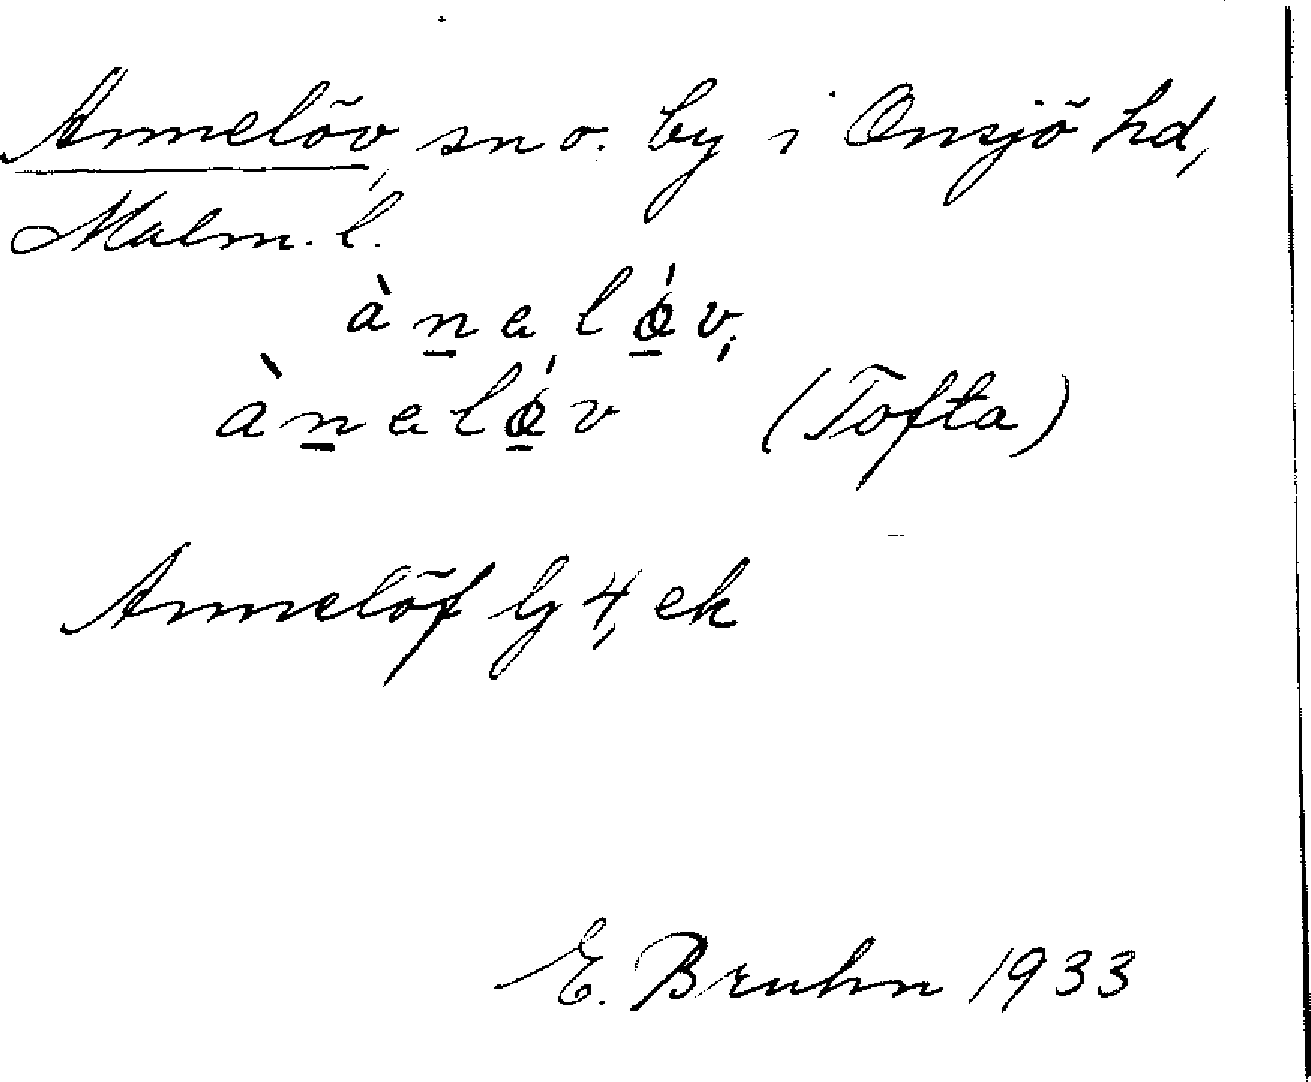 Annelöv, sn o. by i Onsjö hd,
Malm. l.
àn̲eló̲v,
àn̲eló̲v (Tofta)
Annelöf G 4, ek
E. Bruhn 1933